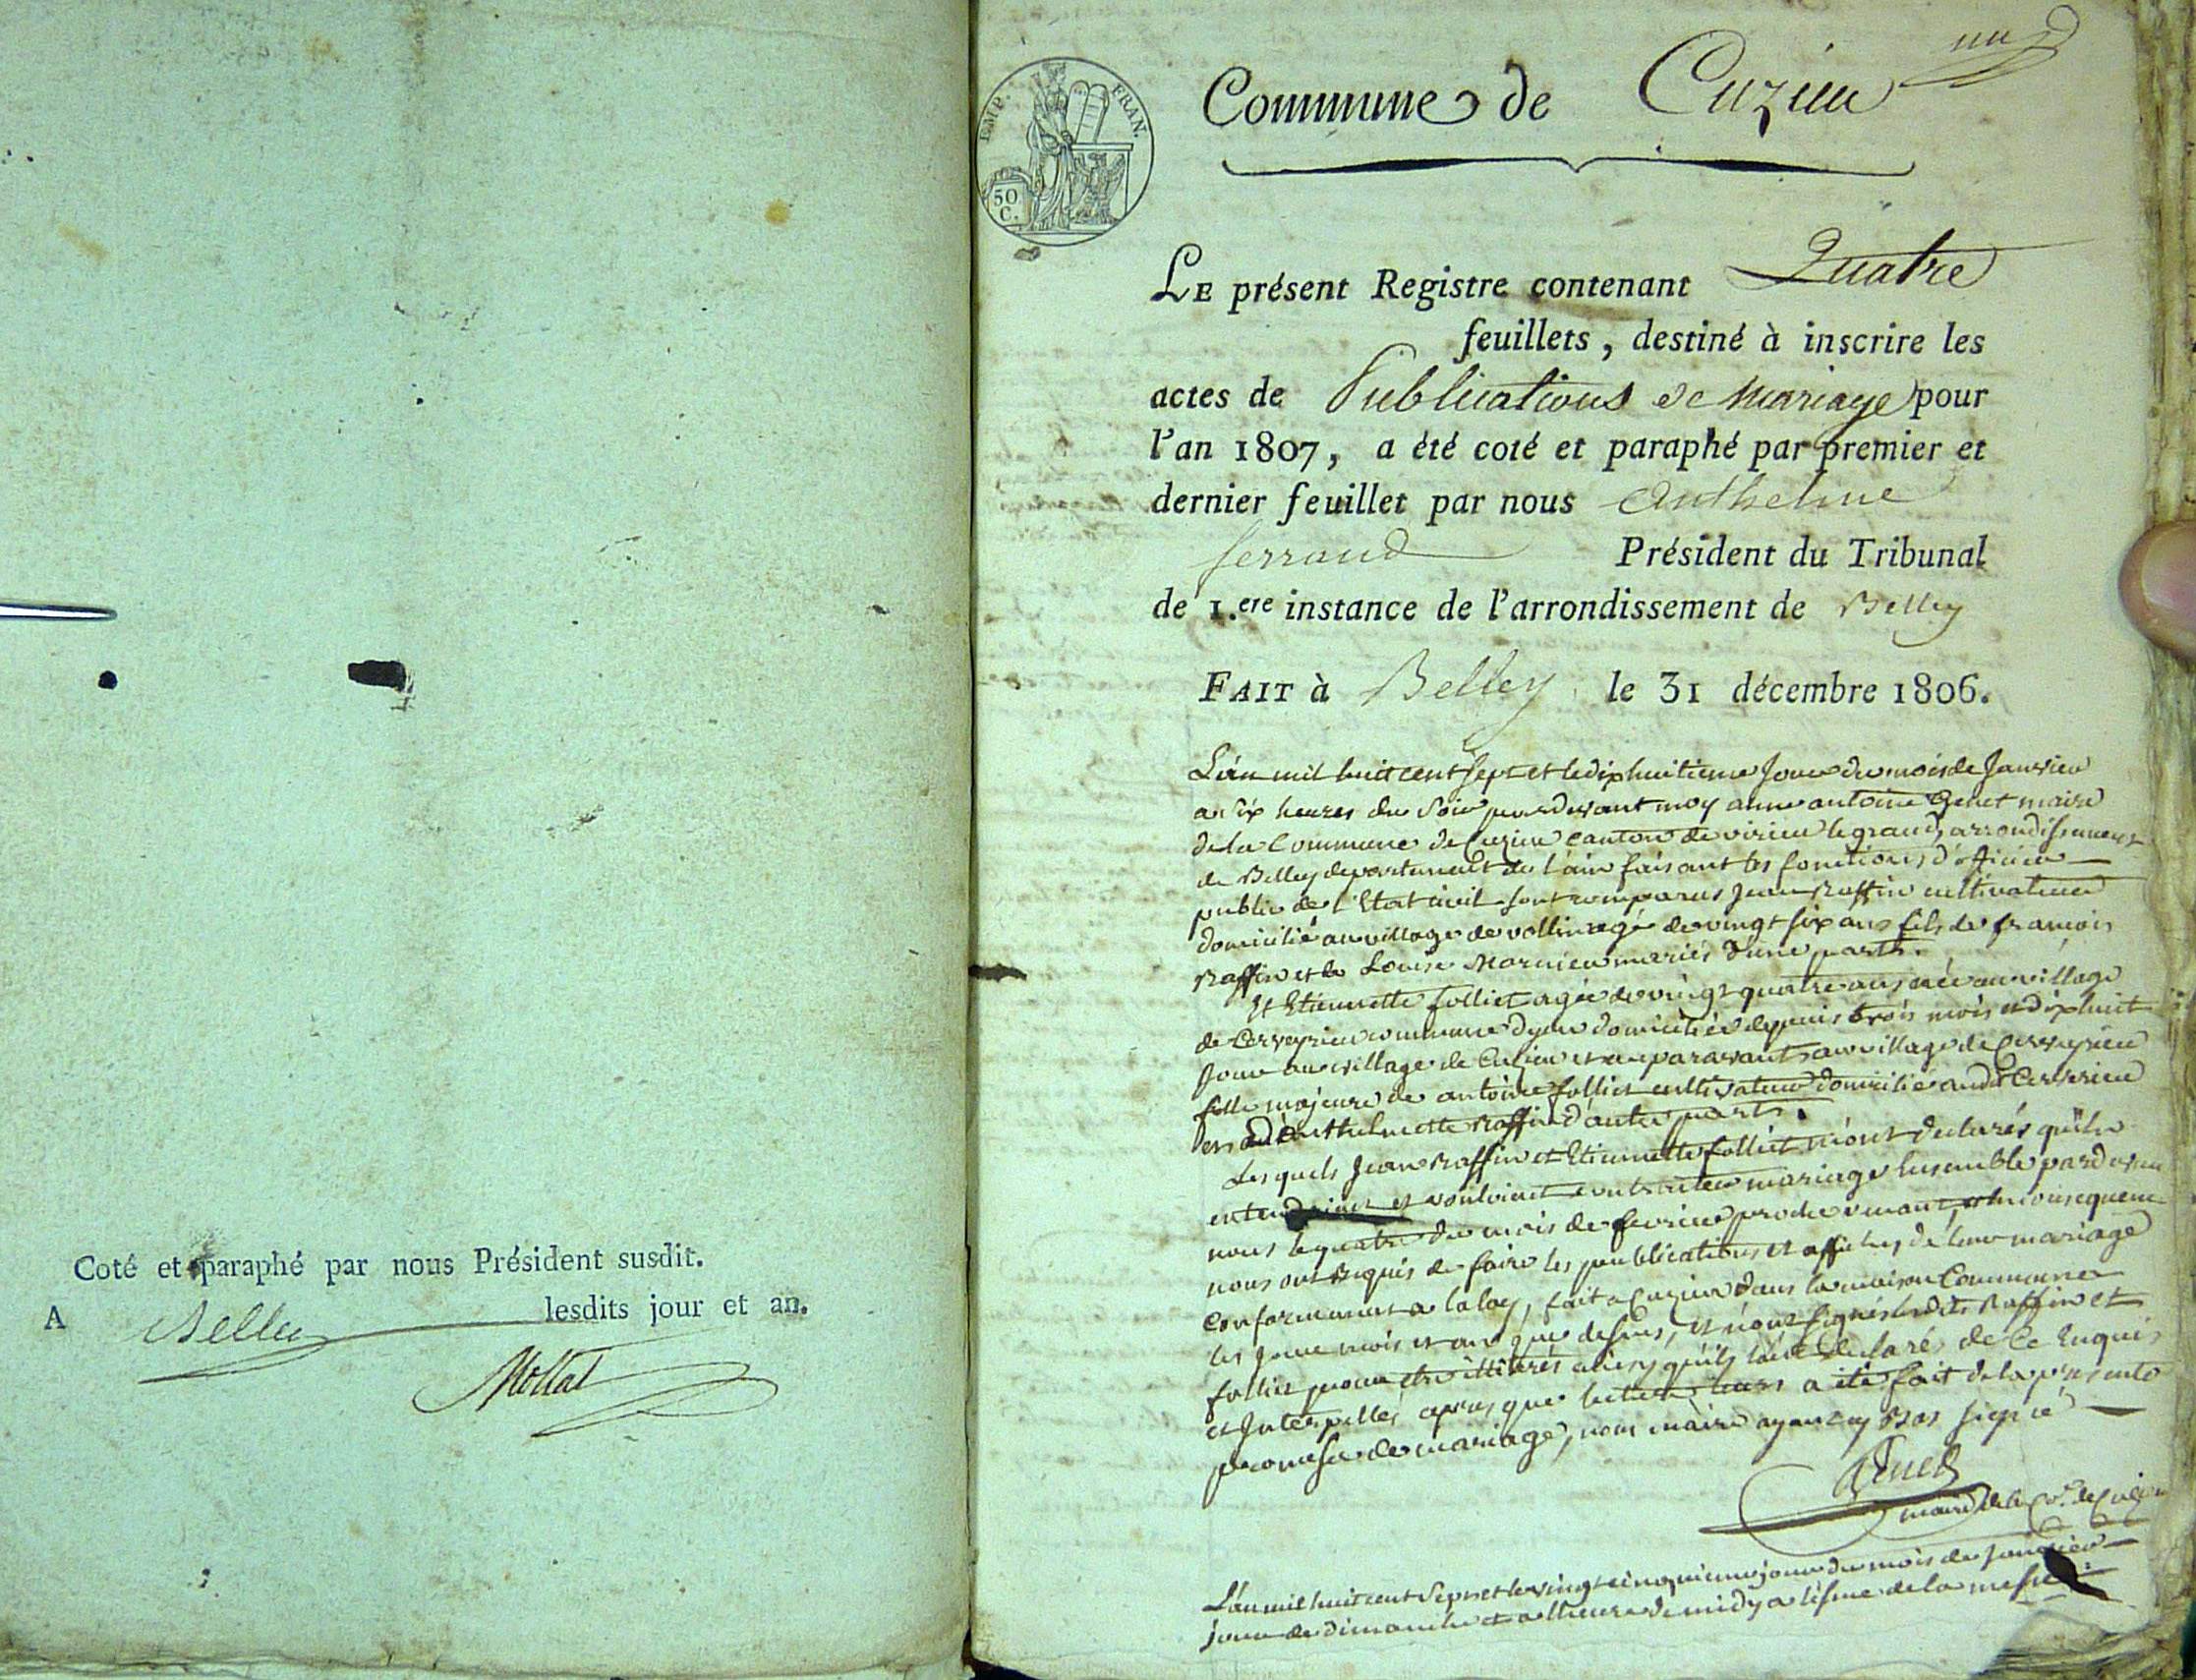 Coté et paraphé par nous Président susdit.
A Belley lesdits jour et an.
Mollat
un
EMP. FRAN.
50
C.
Commune de Cuzieu
LE présent Registre contenant Quatre
feuillets, destiné à inscrire les
actes de Publications de Mariage pour
l'an 1807, a été coté et paraphé par premier et
dernier feuillet par nous Anthelme
ferrand Président du Tribunal
de 1.ere instance de l'arrondissement de Belley
FAIT à Belley le 31 décembre 1806.
L'an mil huit cent sept et le dix huitieme Jour du mois de Janvier
a six heures du soir pardevant moy anne antoine Genet maire
de la Commune de Cuzieu canton de virieu le grand, arrondissement
de Belley departement de l'ain faisant les fonctions d'officier
public de l'Etat civil sont comparus Jean Raffin cultivateur
domicilié au village de vollin agé de vingt six ans fils de françois
Raffin et de Louise Marnieu mariés d'une part.
Et Etiennette folliet agée de vingt quatre ans née au village
de Cerveyrieu commune dyon domiciliée depuis trois mois et dix huit
Jour au village de Cuzieu et auparavant au village de Cerveyrieu
fille majeure de antoine folliet cultivateur domicilié audit Cerverieu
et Anthelmette Raffin d'autre part.
Les quels Jean Raffin et Etiennette folliet m'ont declarés qu'ils
et vouloient contracter mariage Ensemble pardevant
nous le quatre du mois de fevrier prochrement, et en consequence
nous ont Requis de faire les publications et affiches de leur mariage
Conformement a la loy, fait a Cuzieu dans la maison Commune
les Jour mois et an que dessus, et n'ont signés lesdits Raffin et
folliet pour etre illitérés ainsy qu'ils l'ont declaré de Ce Enquis
et Interpellés apres que lecture leurs a été fait de la presente
promesse de mariage, nous maire ayant cy Bas signé
Genet
maire de la Cne. de Cuzieu
L'an mil huit cent Sept et le vingt cinquieme jour du mois de Janvier
jour de dimanche et a l'heure de midy a l'issue de la messe